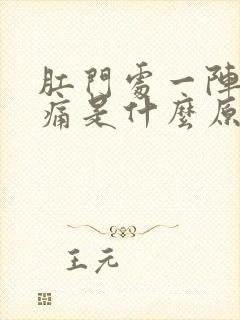 肛門處一陣
痛是什麼原
王元